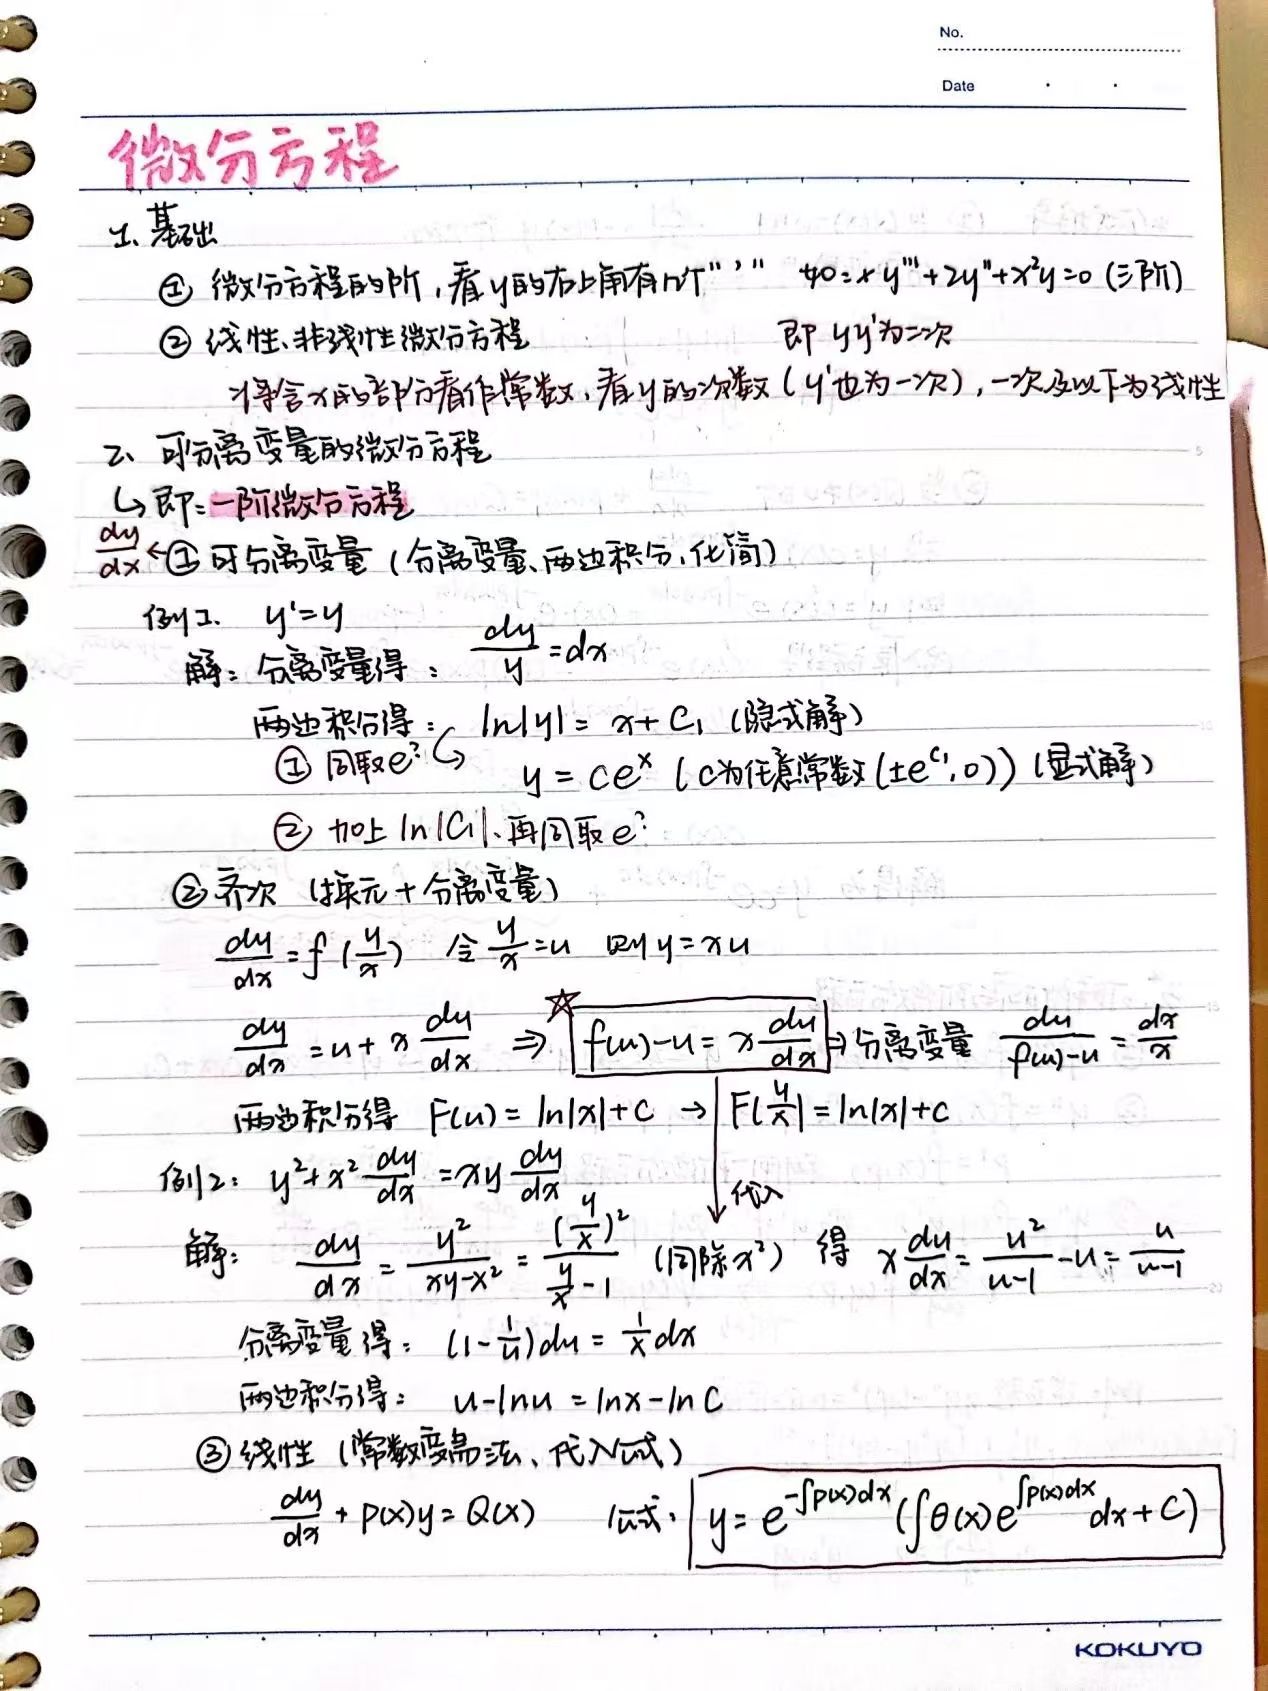 No.
Date
微分方程
1、基础
① 微分方程的阶，看y的右上角有几个"′" 如：xy'''+2y''+x²y=0 (三阶)
② 线性、非线性微分方程 即 yy'为二次
将含x的部分看作常数，看y的次数(y'也为一次)，一次及以下为线性
2、可分离变量的微分方程
↳即：一阶微分方程
dy/dx ←① 可分离变量 (分离变量、两边积分、化简)
例1. y'=y
解：分离变量得： dy/y = dx
两边积分得： ln|y| = x + C₁ (隐式解)
① 同取e^? ↪ y = ce^x (c为任意常数(±e^C₁, 0)) (显式解)
② 加上 ln|C₁|、再同取 e^?
② 齐次 (换元+分离变量)
dy/dx = f(y/x) 令 y/x = u 则 y = xu
dy/dx = u + x du/dx ⇒ ☆ f(u)-u = x du/dx ⇒ 分离变量 du/(f(u)-u) = dx/x
两边积分得 F(u) = ln|x|+C → F(y/x) = ln|x|+C
例2： y²+x² dy/dx = xy dy/dx
代入
解： dy/dx = y²/(xy-x²) = (y/x)²/(y/x - 1) (同除x²) 得 x du/dx = u²/(u-1) - u = u/(u-1)
分离变量得： (1-1/u)du = 1/x dx
两边积分得： u-lnu = lnx-lnC
③ 线性 (常数变易法、代入公式)
dy/dx + P(x)y = Q(x) 公式： y = e^(-∫P(x)dx) (∫θ(x)e^(∫P(x)dx) dx + C)
KOKUYO